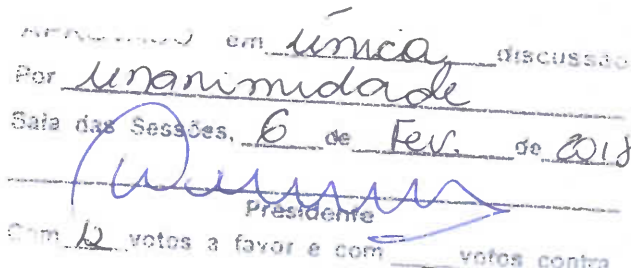 APROVADO em única discussão
Por unanimidade
Sala das Sessões, 6 de Fev. de 2018
Presidente
Com 12 votos a favor e com ____ votos contra